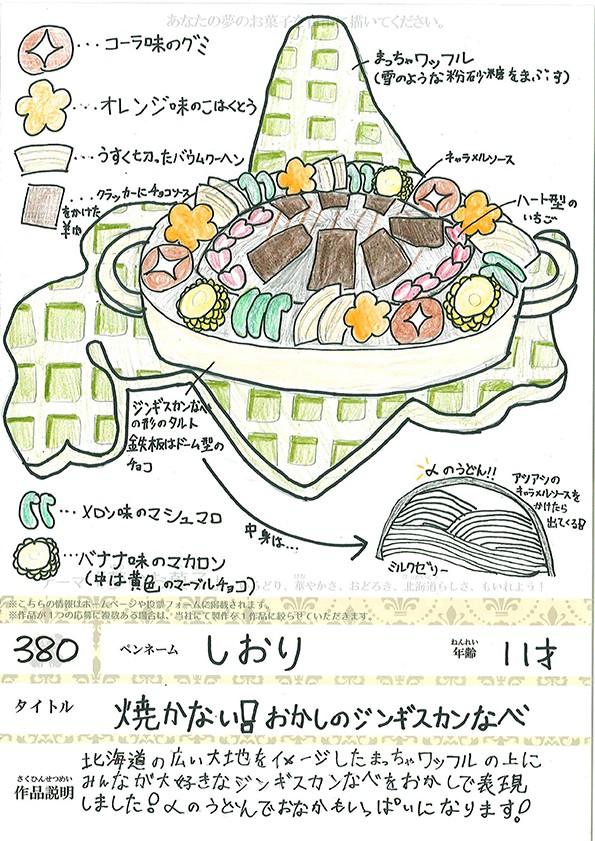 あなたの夢のお菓子を
に描いてください。
…コーラ味のグミ
まっちゃワッフル
(雪のような粉砂糖をまぶす)
…オレンジ味のこはくとう
…うすく切ったバウムクーヘン
キャラメルソース
…クラッカーにチョコソース
をかけた
羊肉
ハート型の
いちご
ジンギスカンなべ
の形のタルト
鉄板はドーム型の
チョコ
〆のうどん!!
アツアツの
キャラメルソースを
かけたら
出てくる!!
…メロン味のマシュマロ
中身は…
ミルクゼリー
…バナナ味のマカロン
(中は黄色のマーブルチョコ)
どり、華やかさ、おどろき、北海道らしさ、もいれよう!
※こちらの情報はホームページや投票フォームに掲載されます。
※作品が1つの応募に複数ある場合は、当社にて製作を1作品に絞らせていただきます。
380 ペンネーム しおり ねんれい 年齢 11才
タイトル 焼かない!おかしのジンギスカンなべ
さくひんせつめい
作品説明
北海道の広い大地をイメージしたまっちゃワッフルの上に
みんなが大好きなジンギスカンなべをおかしで表現
しました!〆のうどんでおなかもいっぱいになります!